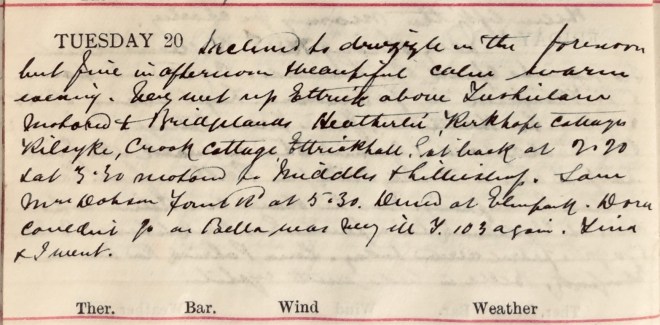 TUESDAY 20 Inclined to drizzle in the forenoon
but fine in afternoon & beautiful calm warm
evening. Very wet up Ettrick above Tushielaw
Motored to Bridgelands Heatherlie, Kirkhope Cottages
Kilsyke, Crook Cottage, Ettrickhall. Got back at 2.20
& at 3.30 motored to Middles & hillieslaf. Saw
Mrs Dobson Forest Rd at 5.30. Dined at Elmpark. Dora
couldn't go as Bella was very ill T. 103 again. Lina
& I went.
Ther. Bar. Wind Weather